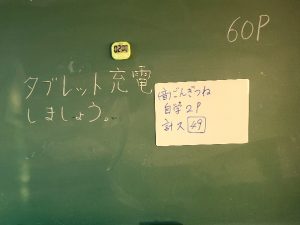 60P
02:00
タブレット充電
しましょう。
㊟ごんぎつね
自学2P
計ス 49